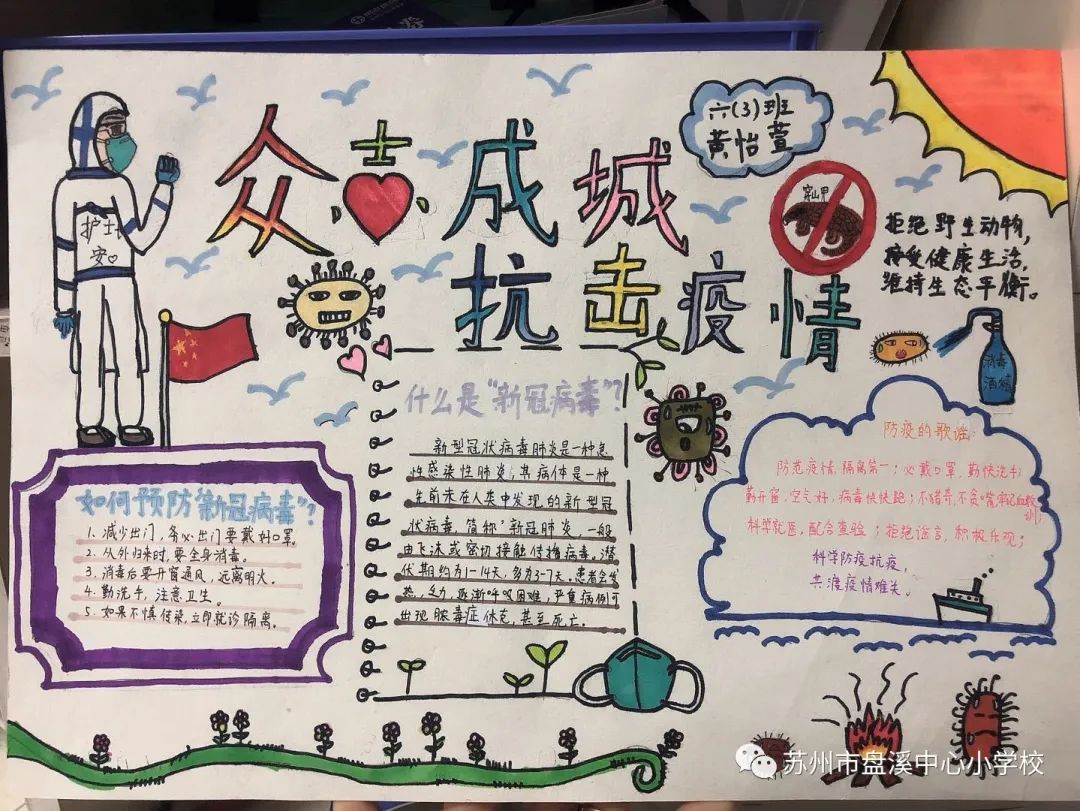 众志成城
抗击疫情
六(3)班
黄怡萱
护士
安
穿山甲
拒绝野生动物,
接受健康生活,
维持生态平衡。
消毒
酒精
如何预防“新冠病毒”?
1. 减少出门,务必出门要戴好口罩。
2. 从外归来时,要全身消毒。
3. 消毒后要开窗通风,远离明火。
4. 勤洗手,注意卫生。
5. 如果不慎传染,立即就诊隔离。
什么是“新冠病毒”?
新型冠状病毒肺炎是一种急
性感染性肺炎,其病体是一种
先前未在人类中发现的新型冠
状病毒,简称“新冠肺炎,一般
由飞沫或密切接触传播病毒。潜
伏期约为1-14天,多为3-7天。患者会发
热、乏力、逐渐呼吸困难,严重病例可
出现脓毒症休克,甚至死亡。
防疫的歌谣:
防范疫情,隔离第一;必戴口罩,勤快洗手;
勤开窗,空气好,病毒快快跑;不猎奇,不贪嘴,牢记血教
训;
科学就医,配合查验;拒绝谣言,积极乐观;
科学防疫抗疫,
共渡疫情难关。
苏州市盘溪中心小学校